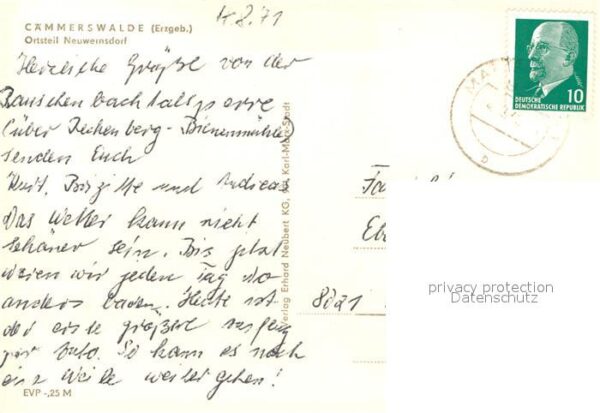 4.8.71
CÄMMERSWALDE (Erzgeb.)
Ortsteil Neuwernsdorf
Herzliche Grüße von der
Rauschenbachtalsperre
(über Rechenberg-Bienenmühle)
senden Euch
Kurt, Brigitte und Andrea
Das Wetter kann nicht
schöner sein. Bis jetzt
waren wir jeden Tag wo
anders baden. Heute ist
der erste größere
per Auto. So kann es noch
eine Weile weiter gehen!
EVP -,25 M
Verlag Erhard Neubert KG, Karl-Marx-Stadt
10
DEUTSCHE
DEMOKRATISCHE REPUBLIK
8021
privacy protection
Datenschutz